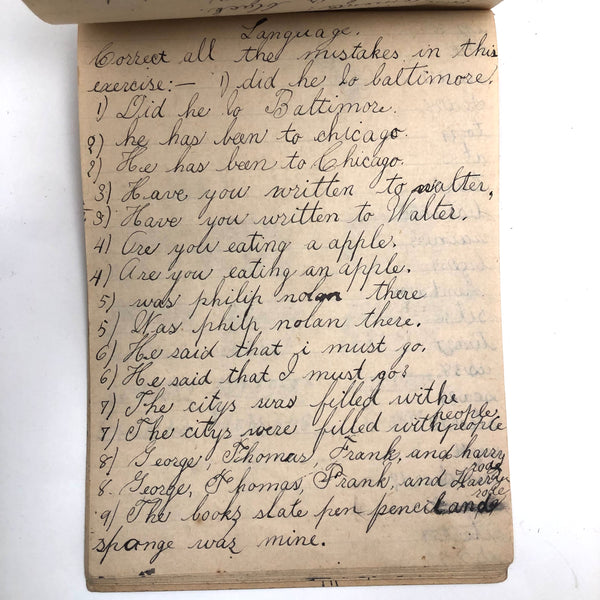 Language.
Correct all the mistakes in this
exercise:— 1) did he go baltimore.
1) Did he go Baltimore.
2) he has been to chicago.
2) He has been to Chicago.
3) Have you written to walter.
3) Have you written to Walter.
4) Are you eating a apple.
4) Are you eating an apple.
5) was philip nolan there
5) Was philp nolan there.
6) He said that i must go.
6) He said that I must go.
7) The citys was filled withe
people
7) The citys were filled with people
8) George, Thomas, Frank, and harry
rode
8. George, Thomas, Frank, and Harry
rode
9) The books slate pen pencil and
sponge was mine.